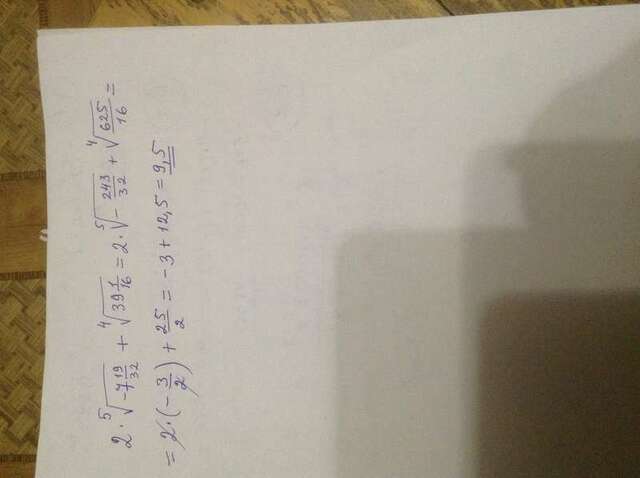 2·⁵√(-7 19/32) + ⁴√(39 1/16) = 2·⁵√(-243/32) + ⁴√(625/16) =
= 2·(-3/2) + 25/2 = -3 + 12,5 = 9,5